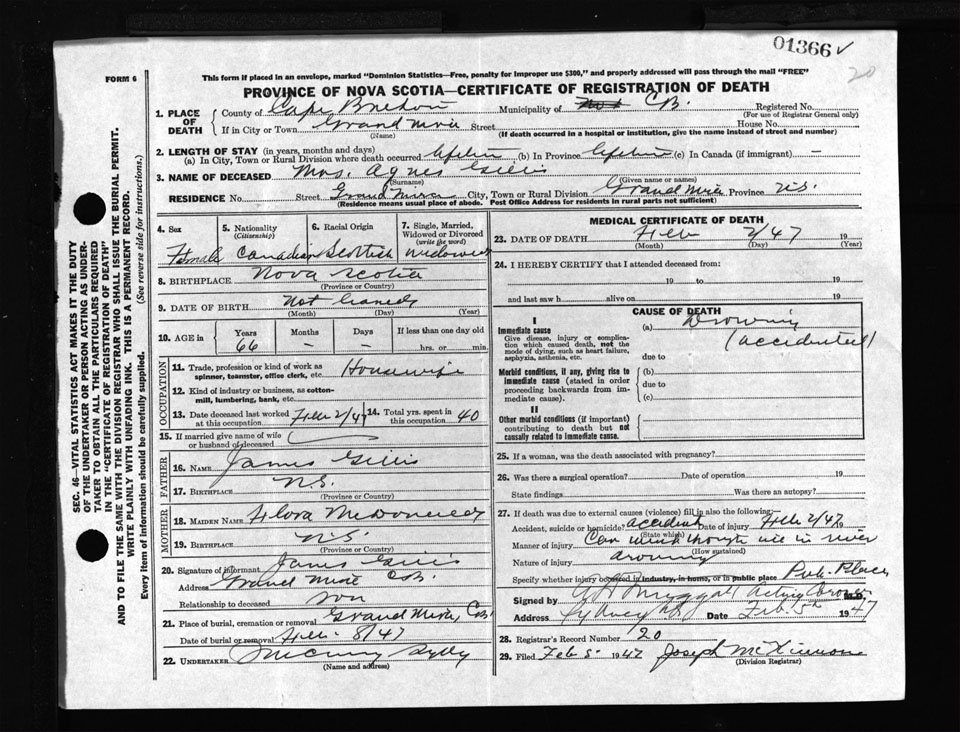 01366 ✓
20
FORM 6
This form if placed in an envelope, marked "Dominion Statistics—Free, penalty for improper use $300," and properly addressed will pass through the mail "FREE"
PROVINCE OF NOVA SCOTIA—CERTIFICATE OF REGISTRATION OF DEATH
1. PLACE OF DEATH
County of Cape Breton Municipality of C.B. Registered No.
(For use of Registrar General only)
If in City or Town Grand Mira Street House No.
(Name) (If death occurred in a hospital or institution, give the name instead of street and number)
2. LENGTH OF STAY (in years, months and days)
(a) In City, Town or Rural Division where death occurred lifetime (b) In Province lifetime (c) In Canada (if immigrant) —
3. NAME OF DECEASED Mrs. Agnes Gillis
(Surname) (Given name or names)
RESIDENCE No. Street Grand Mira City, Town or Rural Division Grand Mira Province N.S.
(Residence means usual place of abode. Post Office Address for residents in rural parts not sufficient)
4. Sex
Female
5. Nationality
(Citizenship)
Canadian
6. Racial Origin
Scottish
7. Single, Married, Widowed or Divorced
(write the word)
Widowed
8. BIRTHPLACE Nova Scotia
(Province or Country)
9. DATE OF BIRTH Not
(Month) (Day) (Year)
10. AGE in
Years Months Days If less than one day old
66 — — hrs. or min.
OCCUPATION
11. Trade, profession or kind of work as spinner, teamster, office clerk, etc. Housewife
12. Kind of industry or business, as cotton-mill, lumbering, bank, etc.
13. Date deceased last worked at this occupation Feb 2/47
14. Total yrs. spent in this occupation 40
15. If married give name of wife or husband of deceased
FATHER
16. NAME James Gillis
17. BIRTHPLACE N.S.
(Province or Country)
MOTHER
18. MAIDEN NAME Flora
19. BIRTHPLACE N.S.
(Province or Country)
20. Signature of informant James Gillis
Address Grand Mira C.B.
Relationship to deceased son
21. Place of burial, cremation or removal Grand Mira, C.B.
Date of burial or removal Feb. 8/47
22. UNDERTAKER
(Name and address)
MEDICAL CERTIFICATE OF DEATH
23. DATE OF DEATH Feb 2/47 19
(Month) (Day) (Year)
24. I HEREBY CERTIFY that I attended deceased from:
19 to 19
and last saw h alive on 19
CAUSE OF DEATH
I
Immediate cause
Give disease, injury or complication which caused death, not the mode of dying, such as heart failure, asphyxia, asthenia, etc.
(a) Drowning
(accidental)
due to
Morbid conditions, if any, giving rise to immediate cause (stated in order proceeding backwards from immediate cause).
(b)
due to
(c)
II
Other morbid conditions (if important) contributing to death but not causally related to immediate cause.
25. If a woman, was the death associated with pregnancy?
26. Was there a surgical operation? Date of operation 19
State findings Was there an autopsy?
27. If death was due to external causes (violence) fill in also the following:
Accident, suicide or homicide? accident Date of injury Feb 2/47 19
(State which)
Manner of injury Car went through ice in river
(How sustained)
Nature of injury drowning
Specify whether injury occurred in industry, in home, or in public place Pub. Place
Signed by Acting M.D.
Address Sydney N.S. Date Feb 5th 1947
28. Registrar's Record Number 120
29. Filed Feb 5 1947 Joseph McKinnon
(Division Registrar)
SEC. 46—VITAL STATISTICS ACT MAKES IT THE DUTY
OF THE UNDERTAKER OR PERSON ACTING AS UNDER-
TAKER TO OBTAIN ALL THE PARTICULARS REQUIRED
IN THE "CERTIFICATE OF REGISTRATION OF DEATH"
AND TO FILE THE SAME WITH THE DIVISION REGISTRAR WHO SHALL ISSUE THE BURIAL PERMIT.
WRITE PLAINLY WITH UNFADING INK. THIS IS A PERMANENT RECORD.
Every item of information should be carefully supplied. (See reverse side for instructions.)